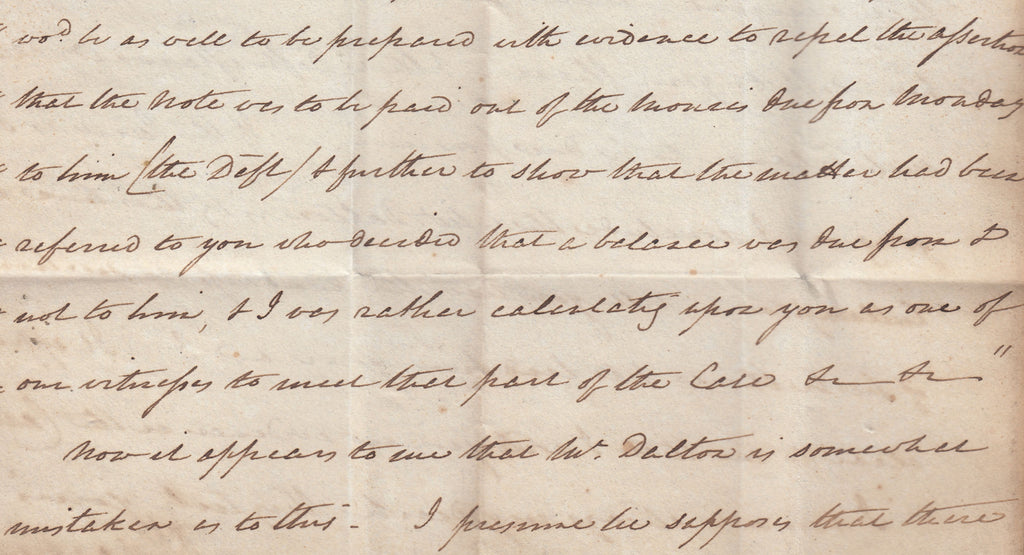 " wod be as well to be prepared with evidence to repel the assertion
" that the Note was to be paid out of the monies due from Monday
" to him (the Deft) & further to show that the matter had been
" referred to you who decided that a balance was due from &
" not to him, & I was rather calculatig upon you as one of
" our witnesses to meet that part of the Case &c &c "
Now it appears to me that Mr. Dalton is somewhat
mistaken as to this - I presume he supposes that there